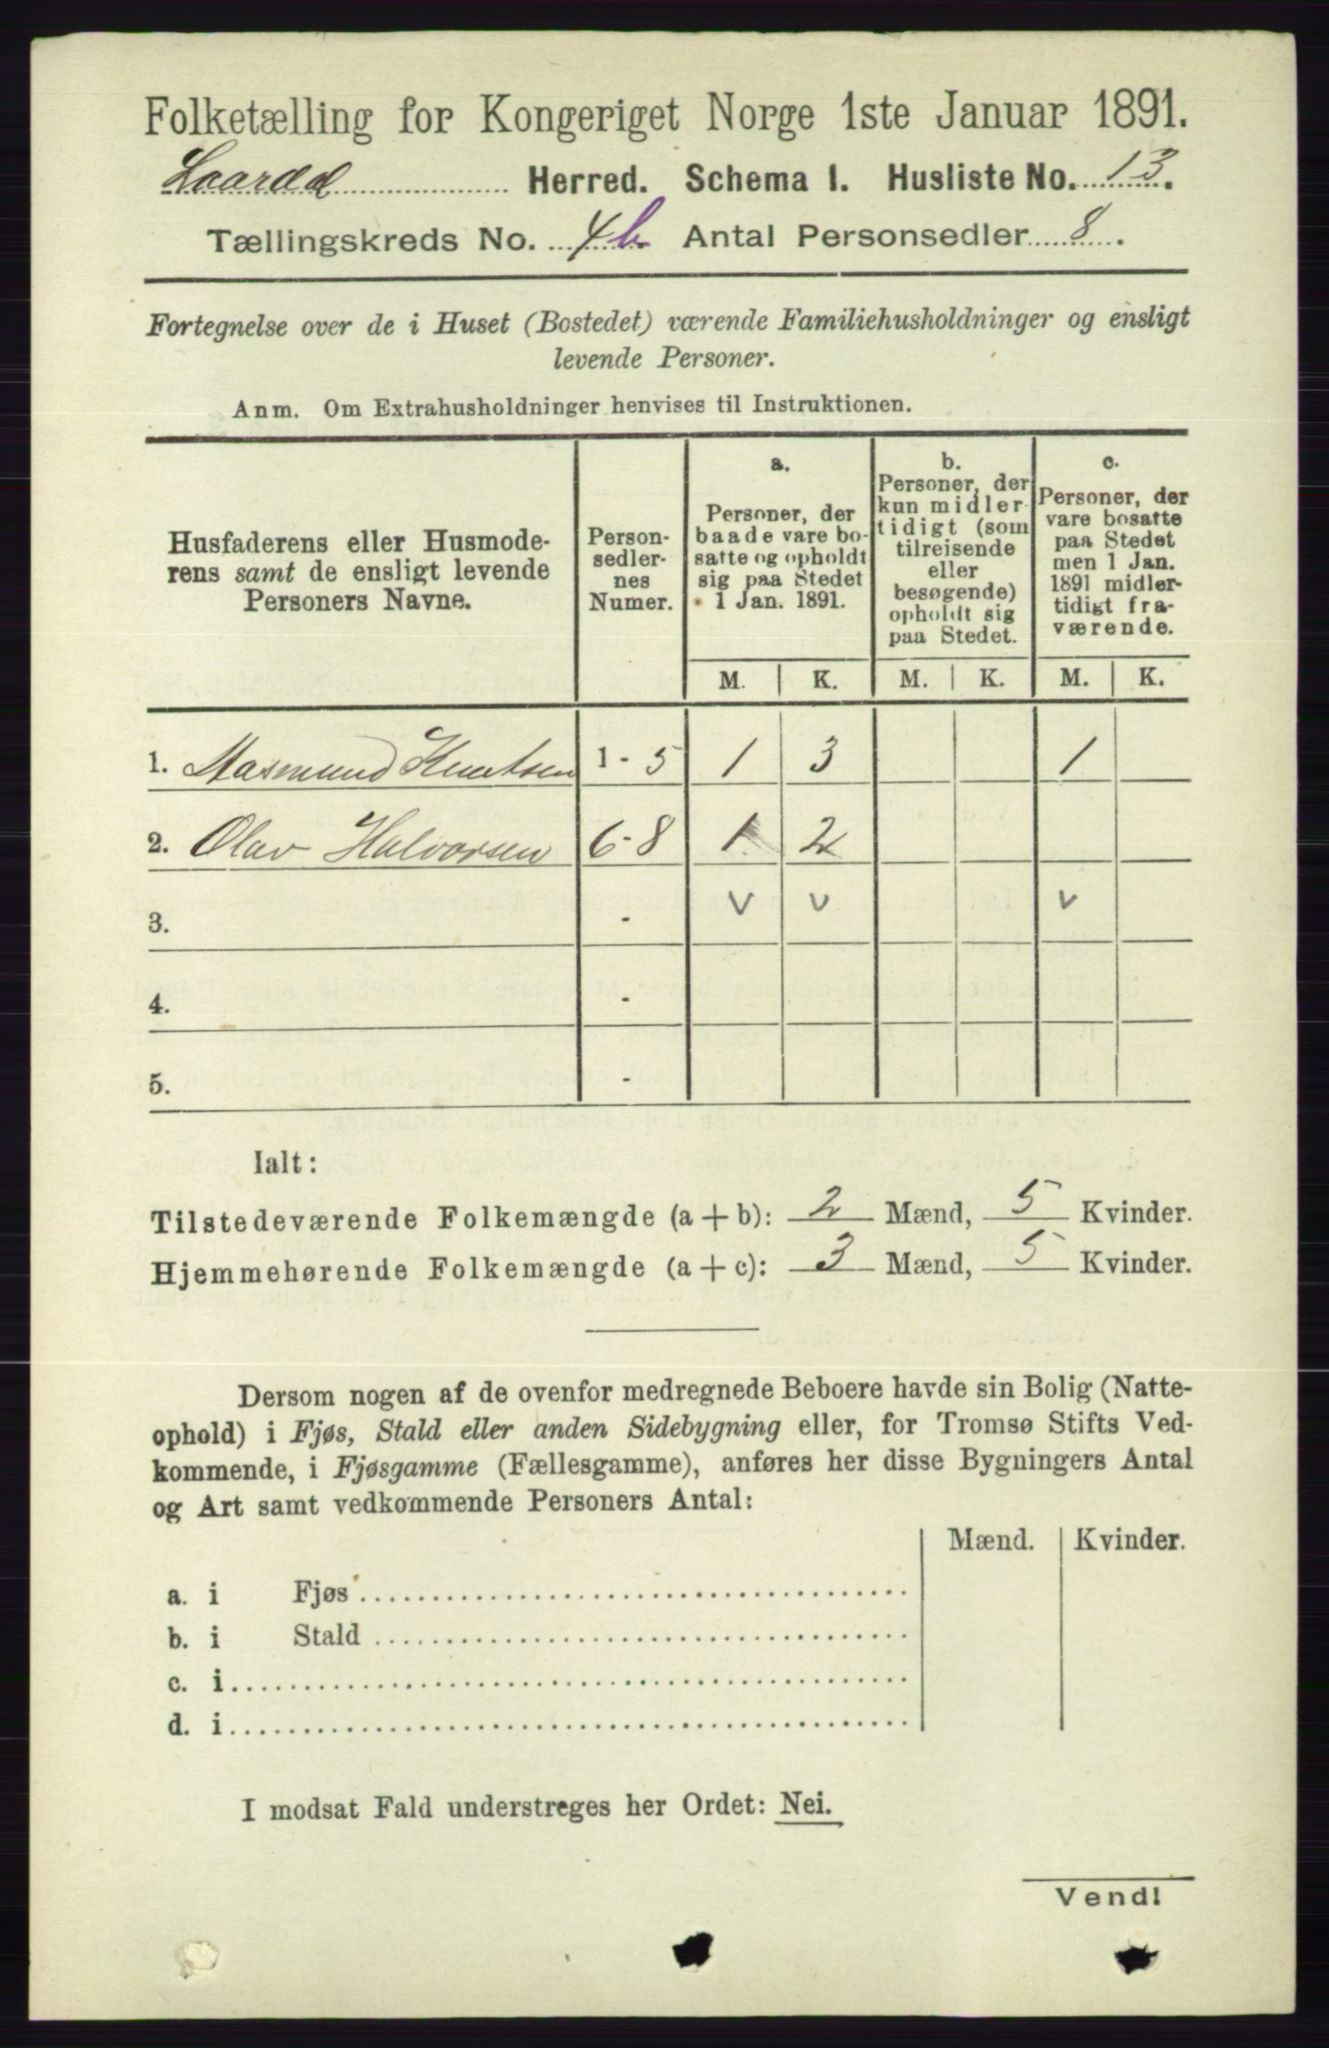 Folketælling for Kongeriget Norge 1ste Januar 1891.
Laardal Herred. Schema I. Husliste No. 13.
Tællingskreds No. 4b. Antal Personsedler 8.
Fortegnelse over de i Huset (Bostedet) værende Familiehusholdninger og ensligt
levende Personer.
Anm. Om Extrahusholdninger henvises til Instruktionen.
Husfaderens eller Husmode-
rens samt de ensligt levende
Personers Navne.
Person-
sedler-
nes
Numer.
a.
Personer, der
baade vare bo-
satte og opholdt
sig paa Stedet
1 Jan. 1891.
b.
Personer, der
kun midler-
tidigt (som
tilreisende
eller
besøgende)
opholdt sig
paa Stedet.
c.
Personer, der
vare bosatte
paa Stedet
men 1 Jan.
1891 midler-
tidigt fra-
værende.
M. K. M. K. M. K.
1. Aasmund Knutsen 1 - 5 1 3 1
2. Olav Halvorsen 6 - 8 1 2
3. - v v v
4. -
5. -
Ialt:
Tilstedeværende Folkemængde (a + b): 2 Mænd, 5 Kvinder.
Hjemmehørende Folkemængde (a + c): 3 Mænd, 5 Kvinder.
Dersom nogen af de ovenfor medregnede Beboere havde sin Bolig (Natte-
ophold) i Fjøs, Stald eller anden Sidebygning eller, for Tromsø Stifts Ved-
kommende, i Fjøsgamme (Fællesgamme), anføres her disse Bygningers Antal
og Art samt vedkommende Personers Antal:
Mænd. Kvinder.
a. i Fjøs
b. i Stald
c. i
d. i
I modsat Fald understreges her Ordet: Nei.
Vend!